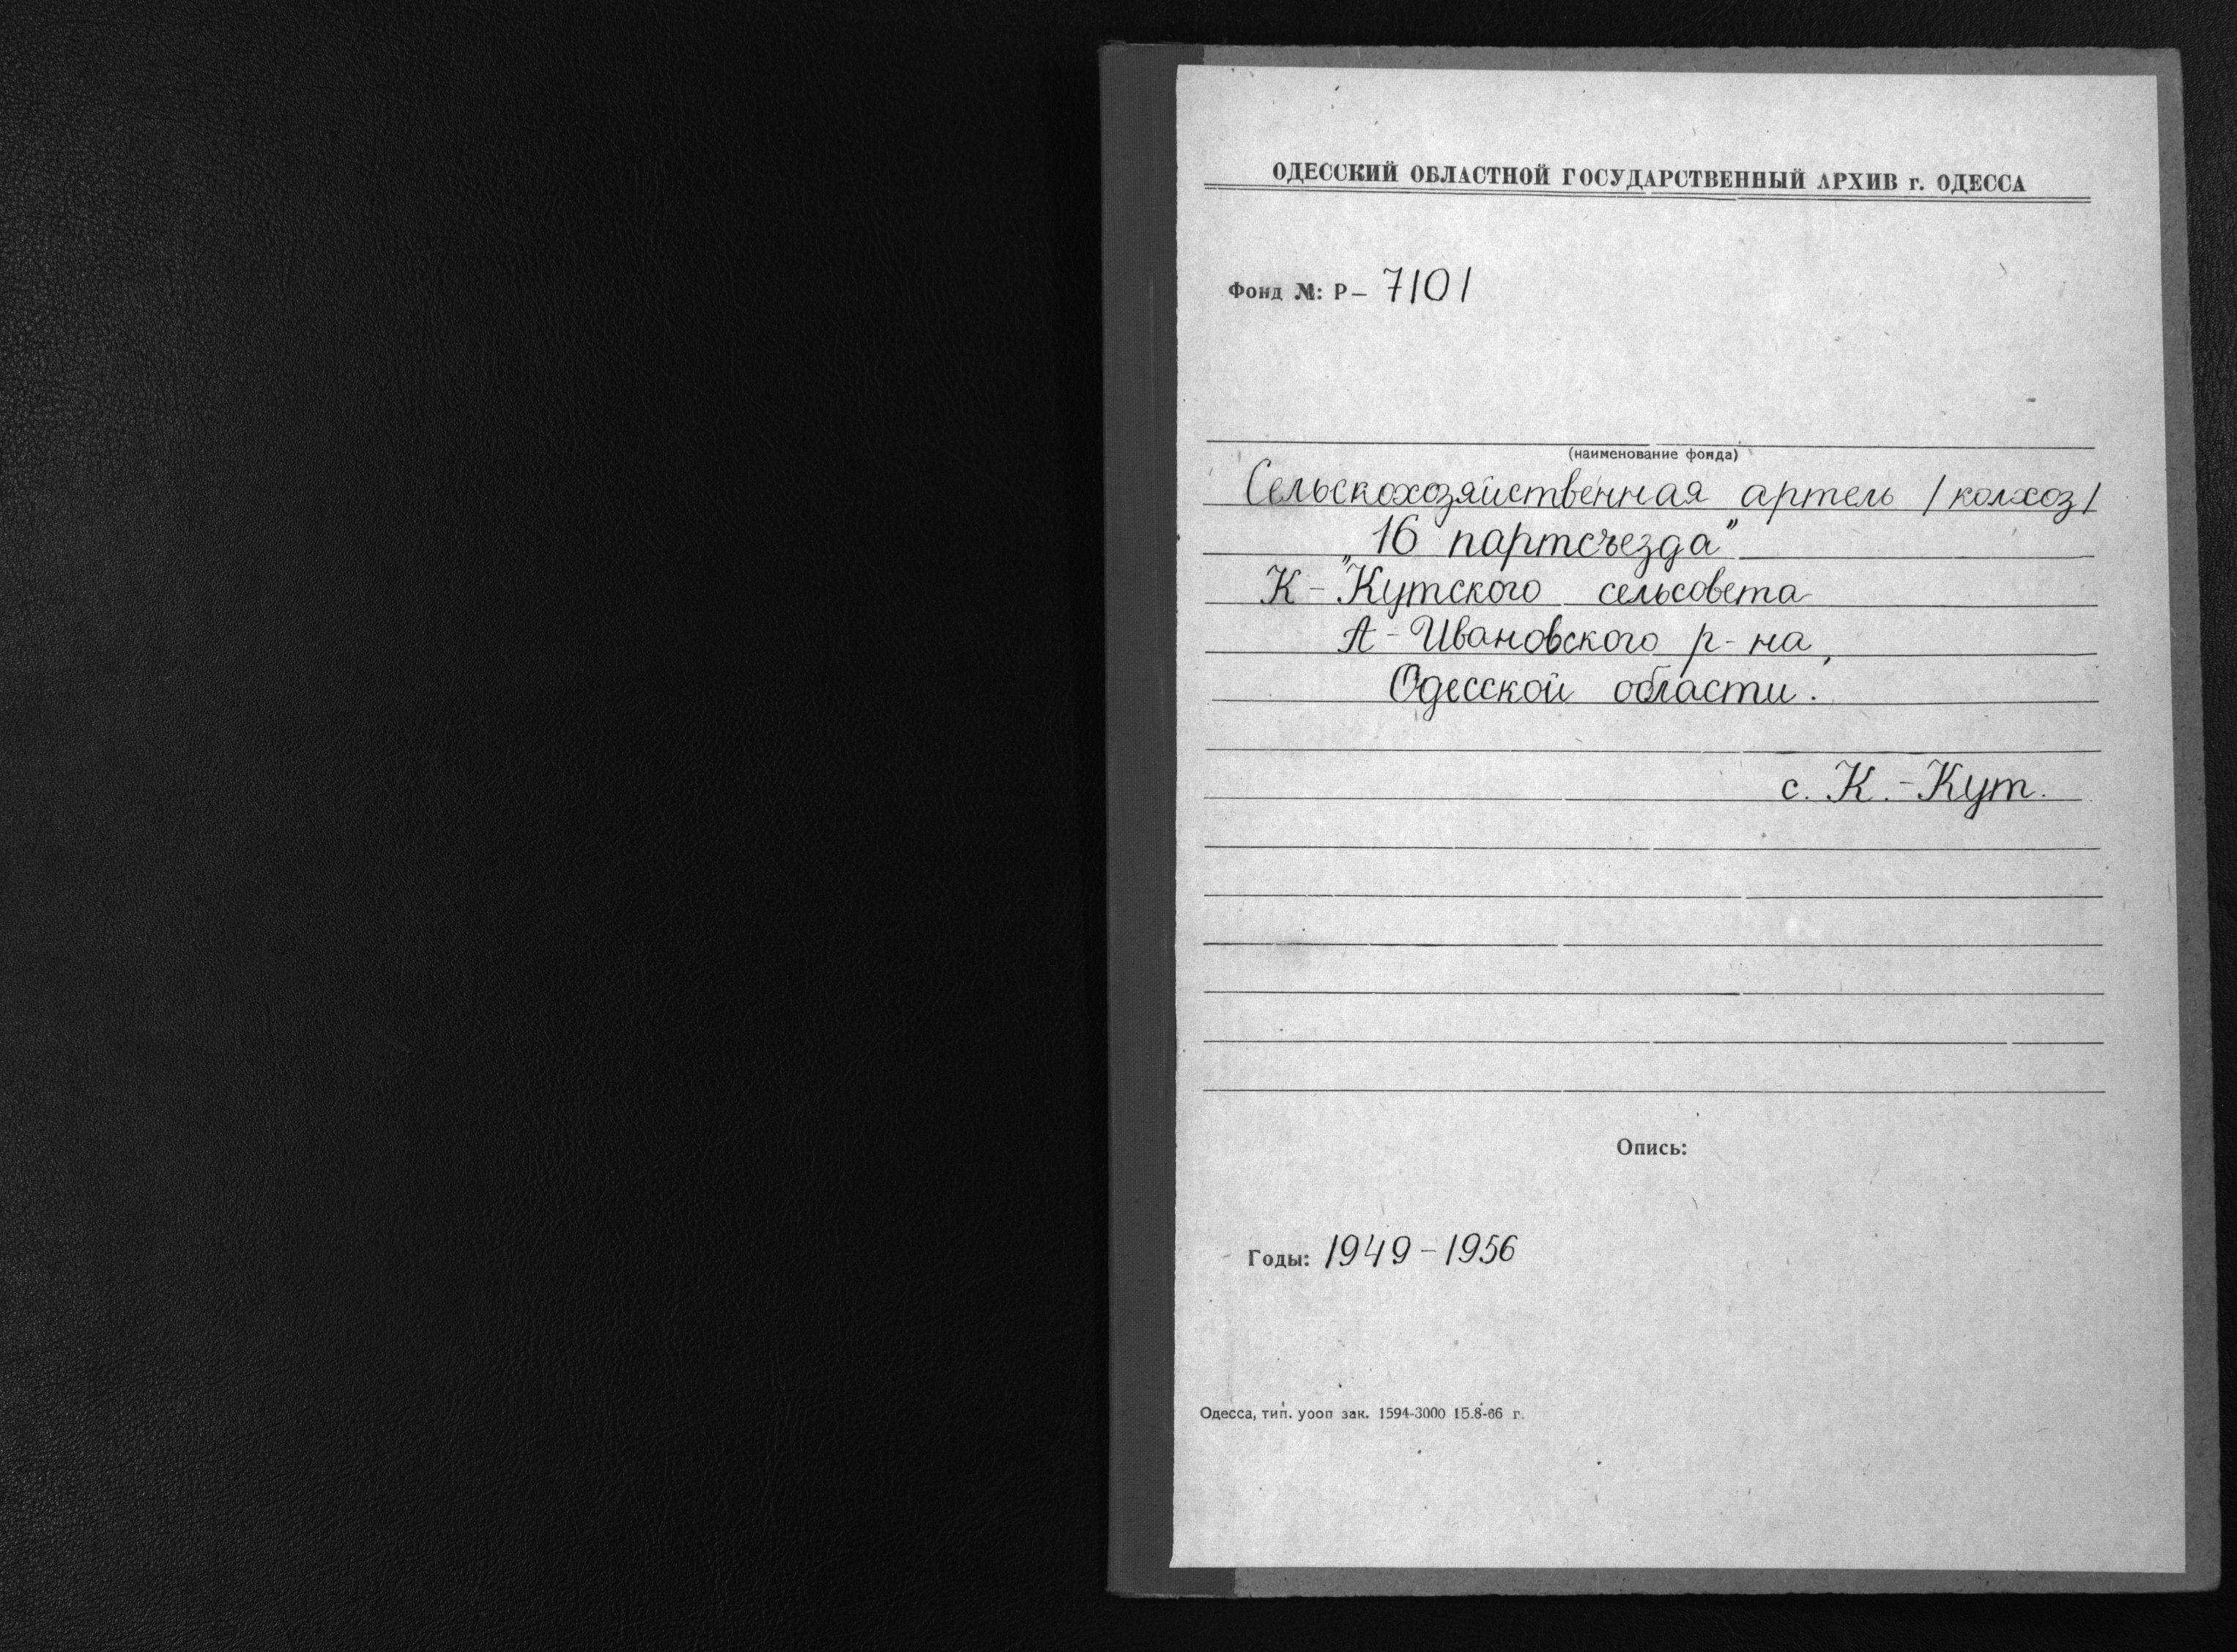 ОДЕССКИЙ ОБЛАСТНОЙ ГОСУДАРСТВЕННЫЙ АРХИВ г. ОДЕССА
Фонд №: Р– 7101
(наименование фонда)
Сельскохозяйственная артель /колхоз/
„16 партсъезда"
К-Кутского сельсовета
А-Ивановского р-на,
Одесской области.
с. К.-Кут.
Опись:
Годы: 1949-1956
Одесса, тип. уооп зак. 1594-3000 15.8-66 г.